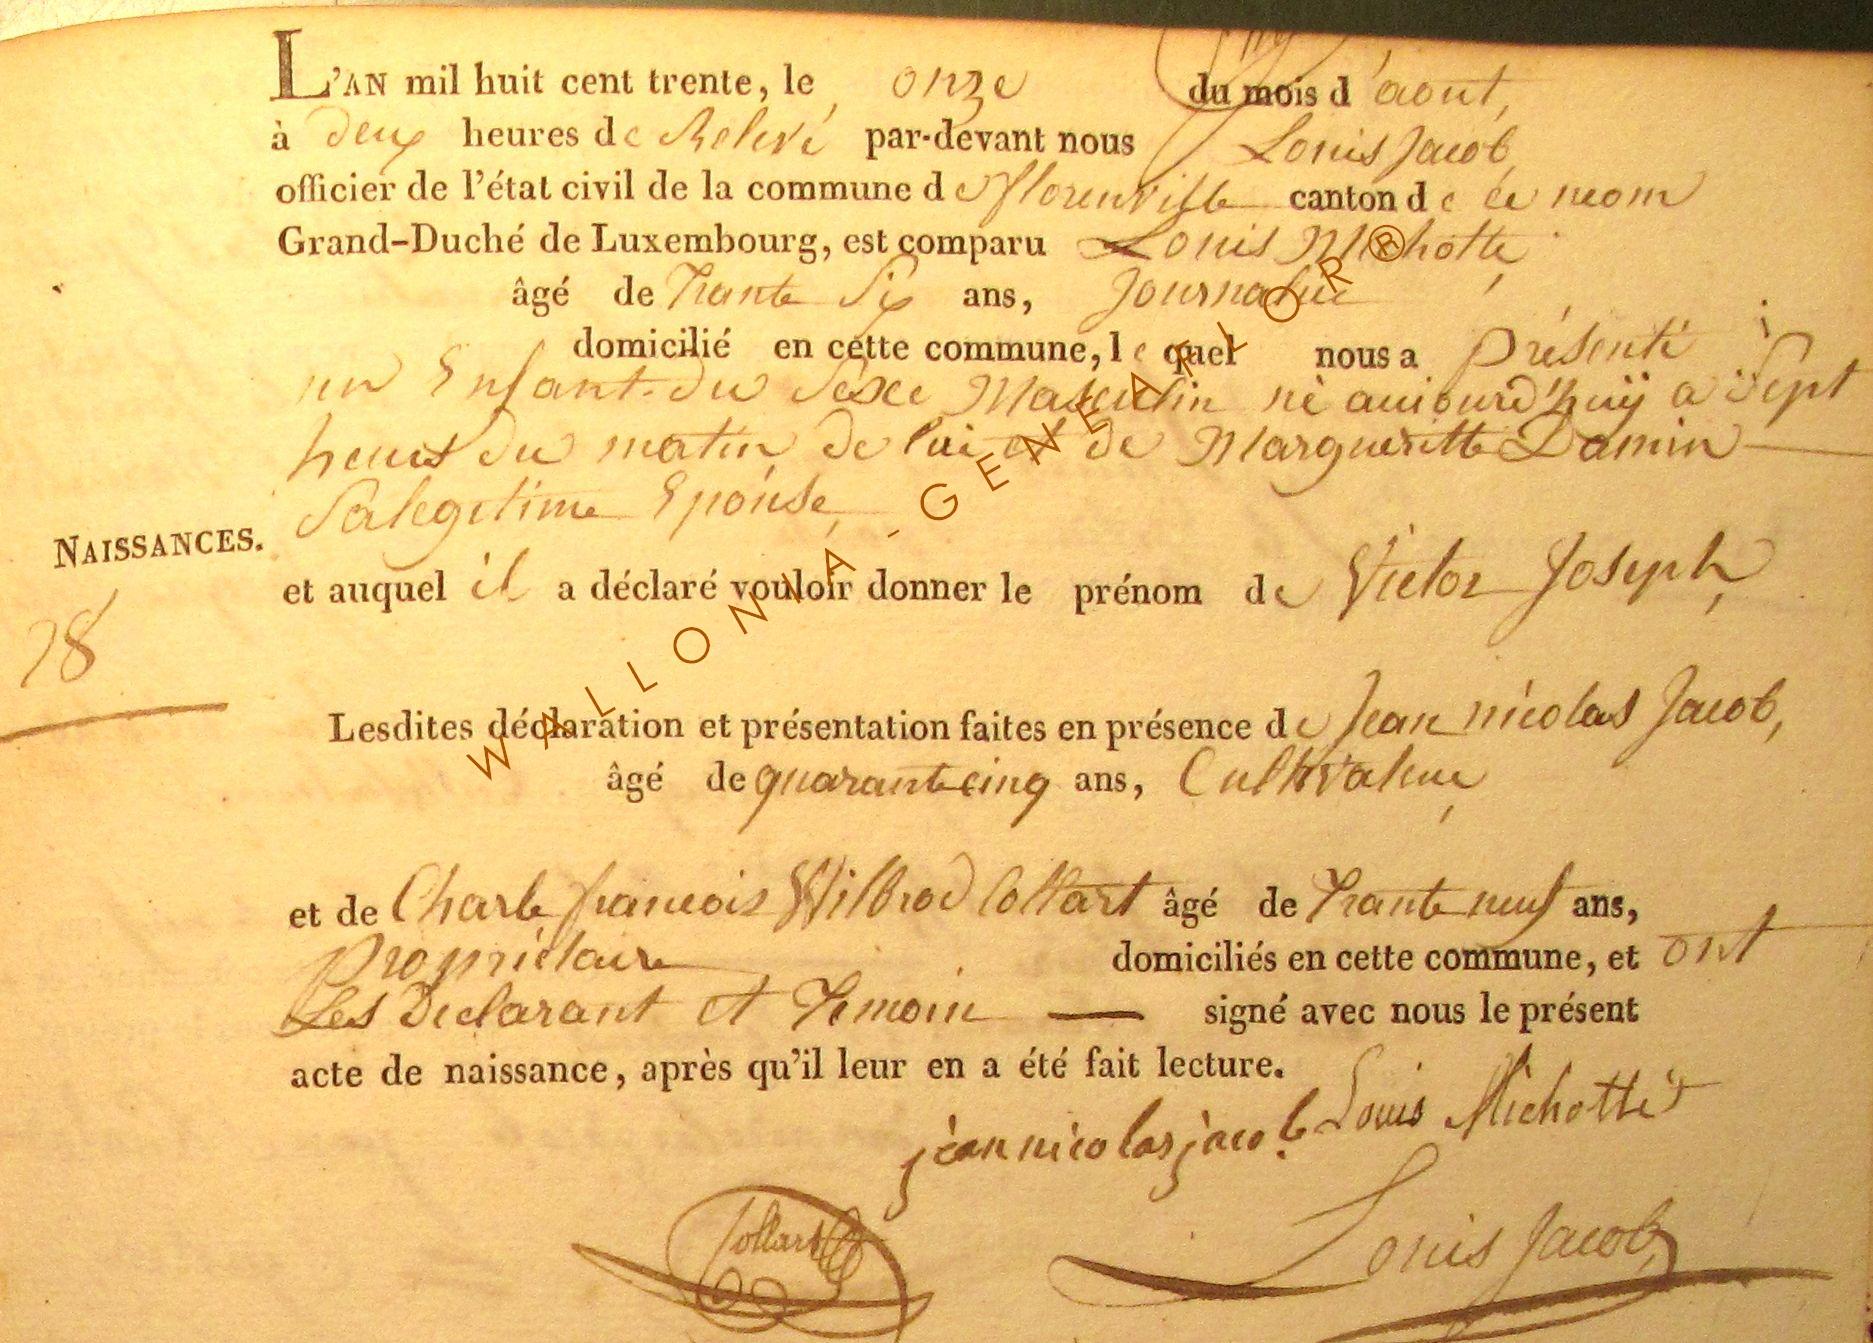 L'AN mil huit cent trente, le onze du mois d'aout,
à deux heures de Relevé par-devant nous Louis Jacob
officier de l'état civil de la commune de florenville canton de ce nom
Grand-Duché de Luxembourg, est comparu Louis Michotte
âgé de Trante Six ans, Journalie
domicilié en cette commune, lequel nous a présenté
un Enfant du Sexe Masculin né aujourd'huÿ a Sept
heures du matin de lui et de Margueritte Damin
Salegitime Epouse
NAISSANCES.
et auquel il a déclaré vouloir donner le prénom de Victor Joseph,
28
Lesdites déclaration et présentation faites en présence de Jean nicolas Jacob,
âgé de quarante cinq ans, Cultivateur
et de Charle francois Wilbrod Collart âgé de Trante neuf ans,
Propriétaire domiciliés en cette commune, et ont
Les Declarant et Temoin — signé avec nous le présent
acte de naissance, après qu'il leur en a été fait lecture.
jean nicolas jacob Louis Michotte
Collart Louis Jacob
WALLONIA-GENEARLOR®